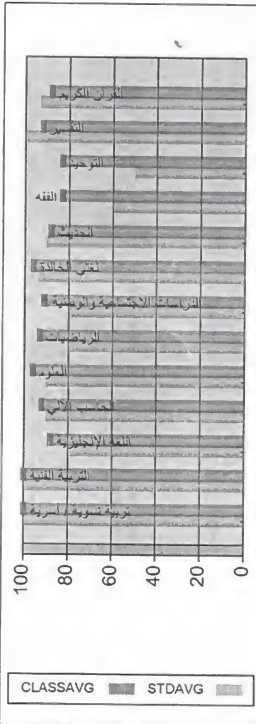 القرآن الكريم
التفسير
التوحيد
الفقه
الحديث
لغتي الخالدة
الدراسات الاجتماعية والوطنية
الرياضيات
العلوم
الحاسب الآلي
اللغة الإنجليزية
التربية الفنية
تربية نسوية / أسرية
100
80
60
40
20
0
CLASSAVG STDAVG